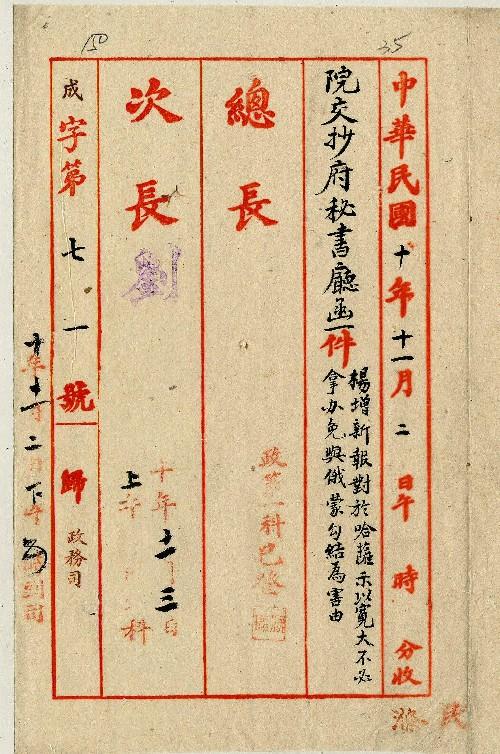 150
35
中華民國十年十一月二日午 時 分收
院交抄府秘書廳函一件
楊增新報對於哈薩示以寬大不必
拿办免與俄蒙勾結為害由
總長
政第一科已登
次長
劉
十年十一月三日
上午 科
成字第七一號
歸
政務司
十年十一月二日下午